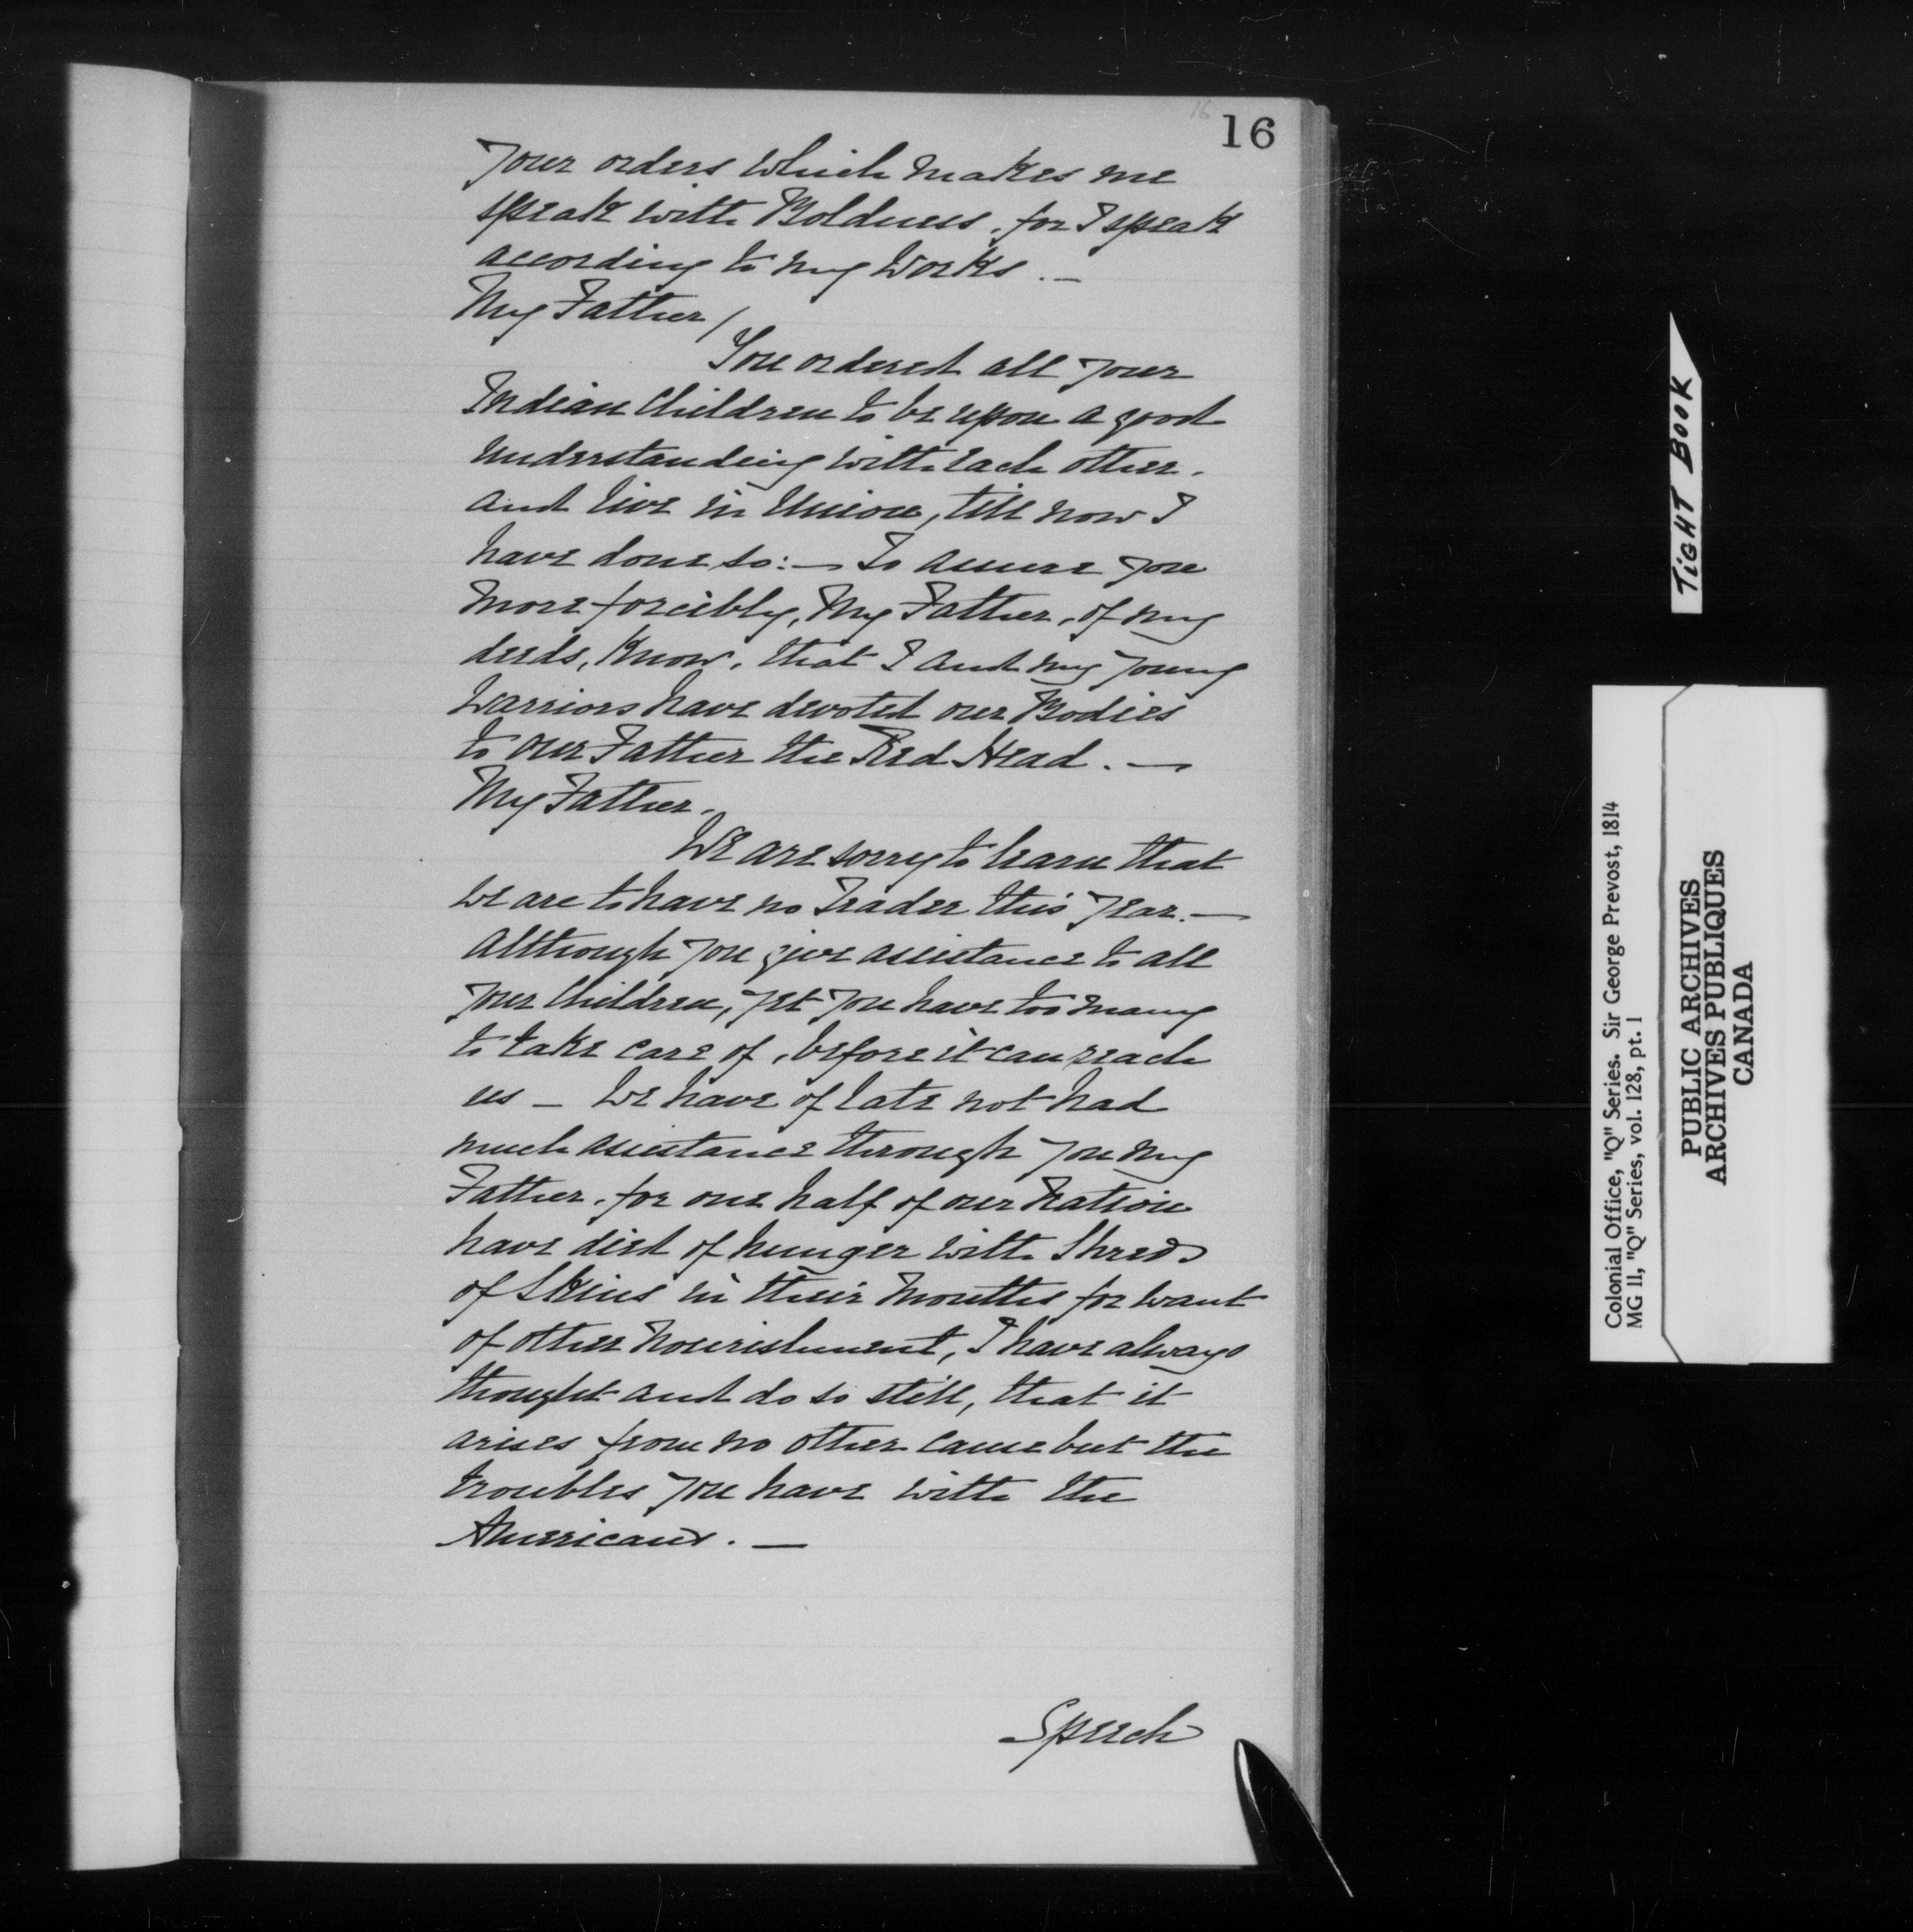 16
16
your orders which makes me
speak with Boldness, for I speak
according to my Works. —
My Father /
You ordered all your
Indian Children to be upon a good
understanding with each other,
and live in Union, till now I
have done so: — To assure you
more forcibly, My Father, of my
deeds, Know, that I and my young
Warriors have devoted our Bodies
to our Father the Red Head. —
My Father,
We are sorry to learn that
we are to have no Trader this year. —
Although you give assistance to all
your Children, yet you have too many
to take care of, before it can reach
us — We have of late not had
much assistance through you my
Father, for one half of our Nation
have died of hunger with Shreds
of Skins in their mouths for want
of other nourishment, I have always
thought and do so still, that it
arises from no other cause but the
troubles you have with the
Americans. —
Speech
TIGHT BOOK
Colonial Office, "Q" Series. Sir George Prevost, 1814
MG 11, "Q" Series, vol. 128, pt. 1
PUBLIC ARCHIVES
ARCHIVES PUBLIQUES
CANADA